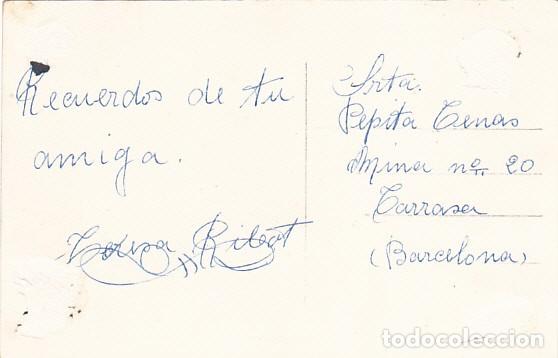 Recuerdos de tu
amiga.
Ribot
Srta.
Pepita Tenas
Mina nº 20
Tarrasa
(Barcelona)
todocoleccion.net